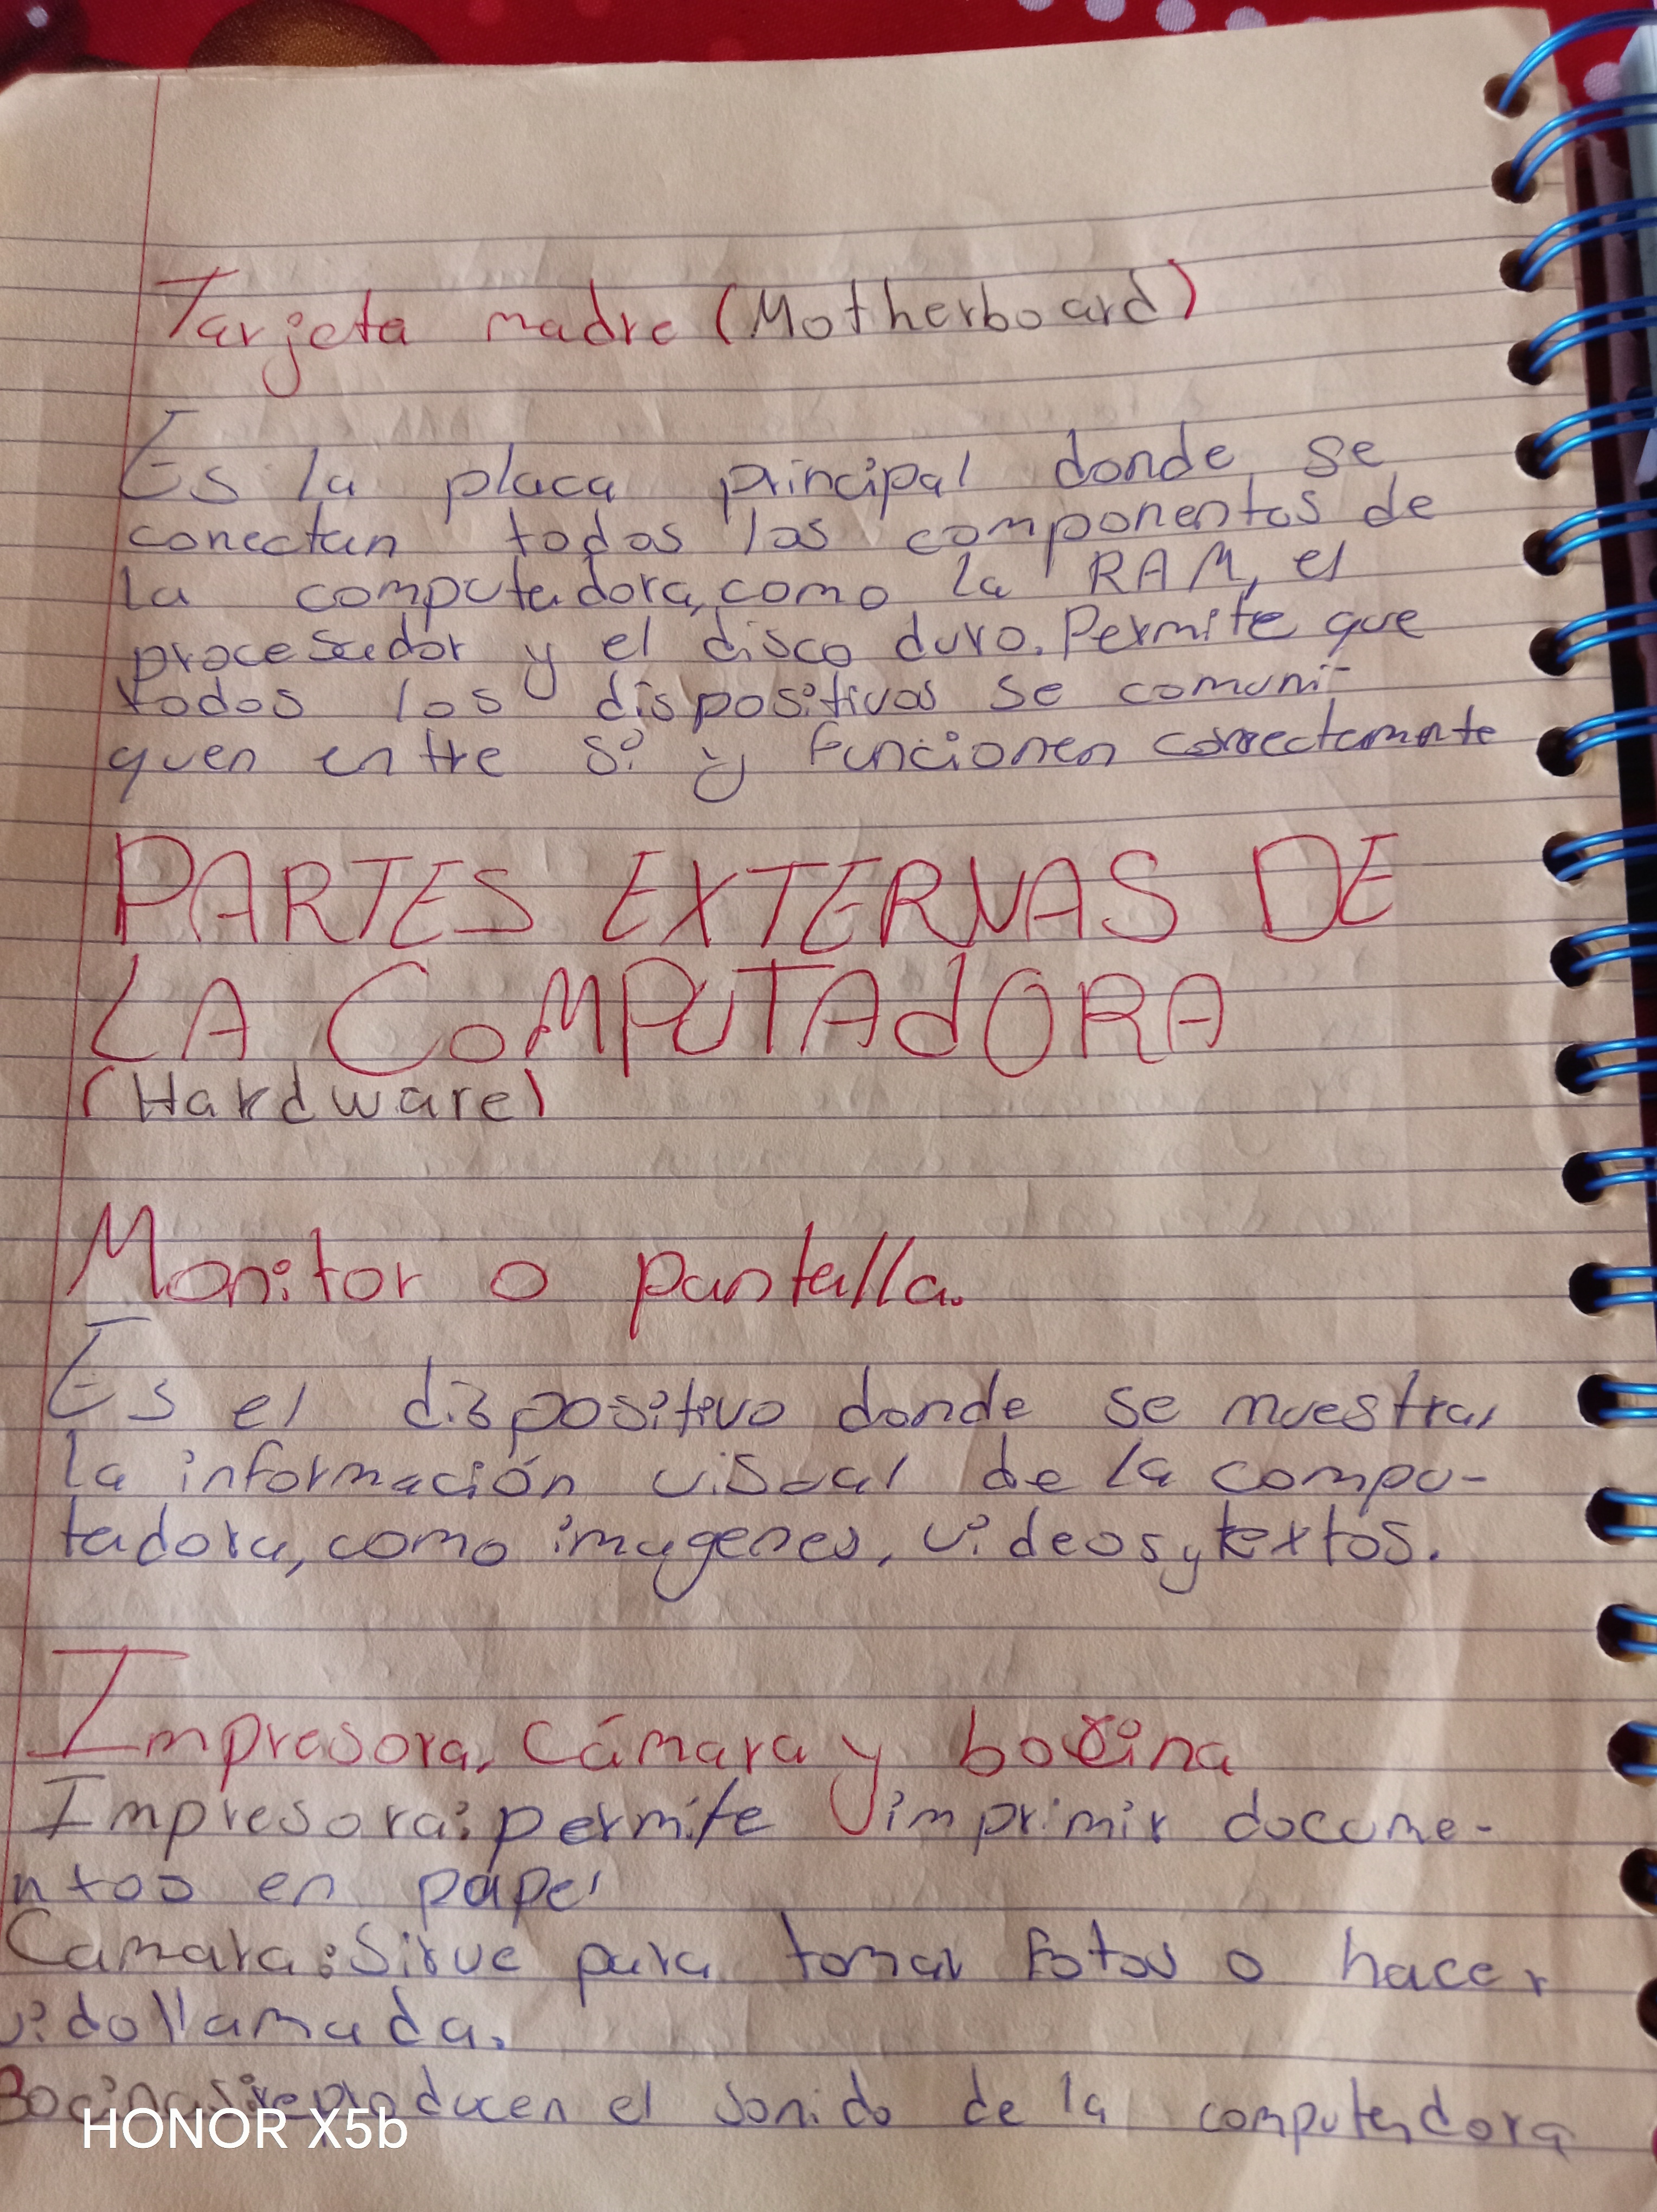 Tarjeta madre (Motherboard)
Es la placa principal donde se
conectan todos los componentes de
la computadora, como la RAM, el
procesador y el disco duro. Permite que
todos los dispositivos se comuni-
quen entre si y funcionen correctamente
PARTES EXTERNAS DE
LA COMPUTADORA
(Hardware)
Monitor o pantalla.
Es el dispositivo donde se muestra
la información visual de la compu-
tadora, como imagenes, videos y textos.
Impresora, Cámara y bocina
Impresora: permite imprimir docume-
ntos en papel
Camara: Sirve para tomar fotos o hacer
vidollamada.
Bocinas: reproducen el sonido de la computadora
HONOR X5b